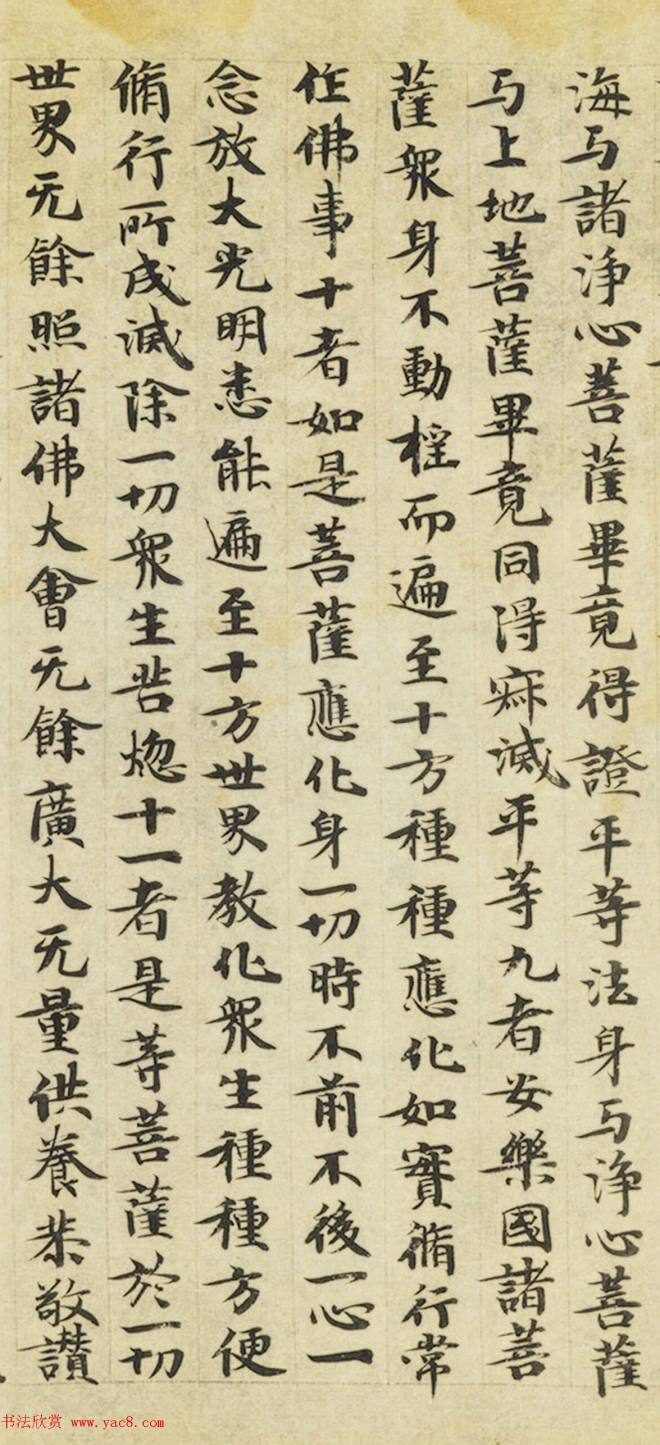 海与諸浄心菩薩畢竟得證平等法身与浄心菩薩
与上地菩薩畢竟同得寂滅平等九者安樂國諸菩
薩衆身不動榣而遍至十方種種應化如實脩行常
作佛事十者如是菩薩應化身一切時不前不後一心一
念放大光明悉能遍至十方世界教化衆生種種方便
脩行所成滅除一切衆生苦惚十一者是等菩薩於一切
世界无餘照諸佛大會无餘廣大无量供養恭敬讃
书法欣赏 www.yac8.com